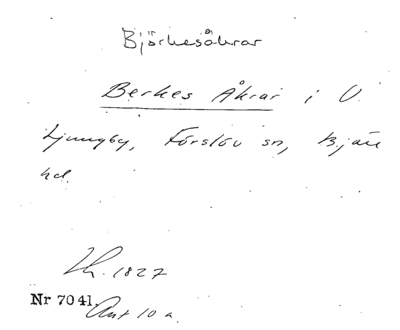 Björkesåkrar
Berkes Åkrar i V.
Ljungby, Förslöv sn, Bjäre
hd.
Lh. 1827
Nr 7041.
Ant 10 a.